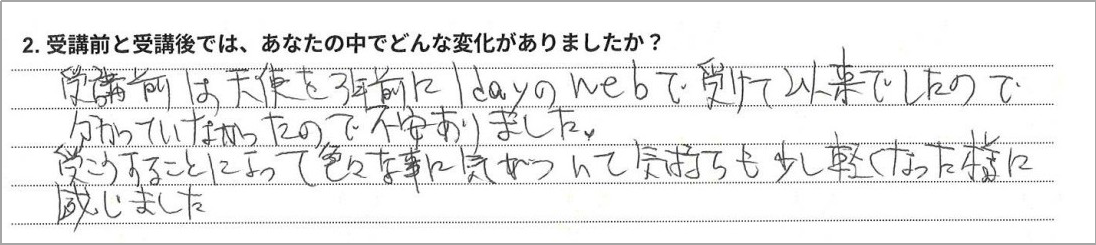 2. 受講前と受講後では、あなたの中でどんな変化がありましたか？
受講前は天使を3年前に1dayのwebで受けて以来でしたので
分かっていなかったので不安ありました。
受こうすることによって色々な事に気がついて気持ちも少し軽くなった様に
感じました